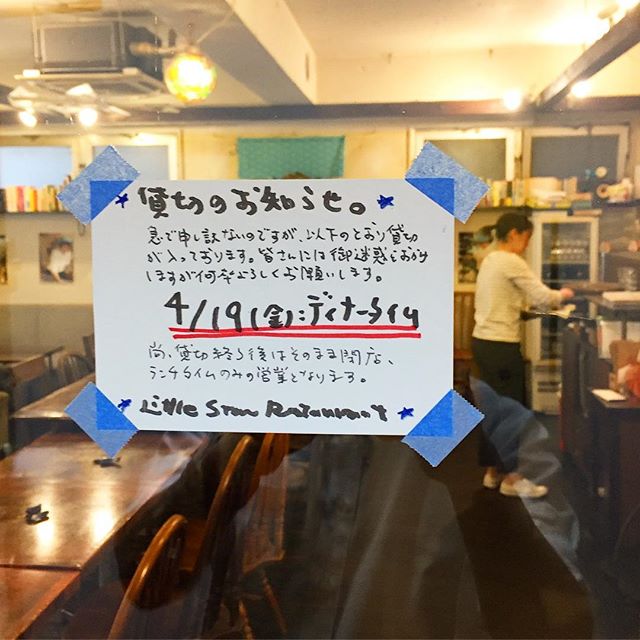 ★貸切のお知らせ。★
急で申し訳ないのですが、以下のとおり貸切
が入っております。皆さんには御迷惑をおかけ
しますが何卒よろしくお願いします。
4/19(金):ディナータイム
尚、貸切終了後はそのまま閉店、
ランチタイムのみの営業となります。
★Little Star Restaurant★